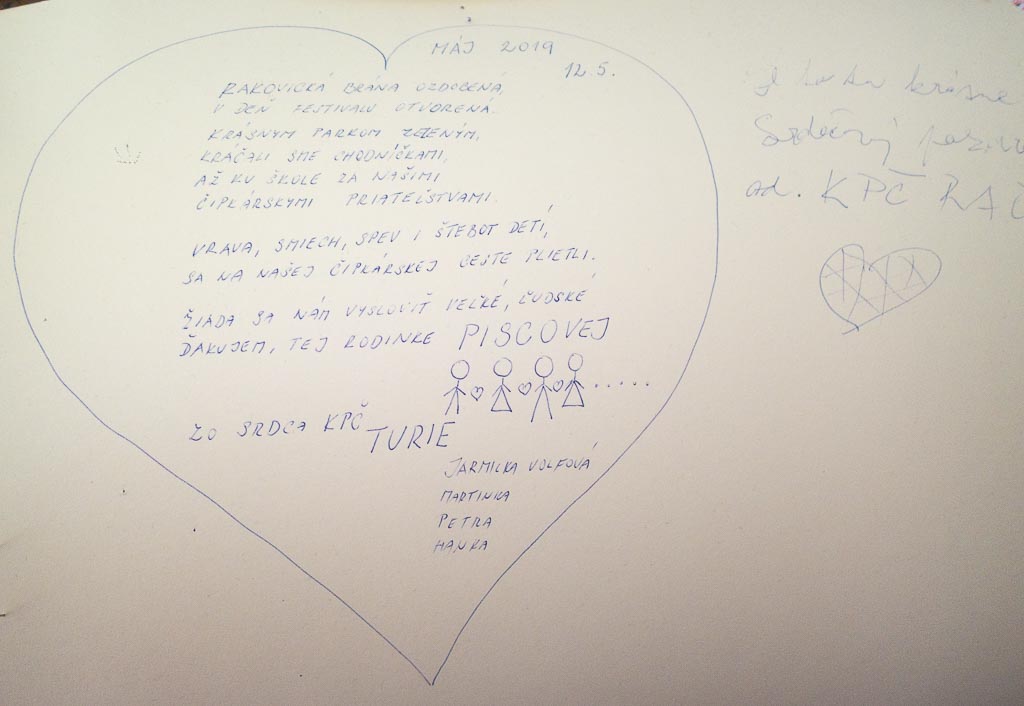 MÁJ 2019
12.5.
RAKOVICKÁ BRÁNA OZDOBENÁ,
V DEŇ FESTIVALU OTVORENÁ.
KRÁSNYM PARKOM ZELENÝM,
KRÁČALI SME CHODNÍČKAMI,
AŽ KU ŠKOLE ZA NAŠIMI
ČIPKÁRSKYMI PRIATEĽSTVAMI.
VRAVA, SMIECH, SPEV I ŠTEBOT DETÍ,
SA NA NAŠEJ ČIPKÁRSKEJ CESTE PLIETLI.
ŽIADA SA NÁM VYSLOVIŤ VEĽKÉ, ĽUDSKÉ
ĎAKUJEM, TEJ RODINKE PISCOVEJ
ZO SRDCA KPČ
TURIE
JARMILKA VOLFOVÁ
MARTINKA
PETRA
HANKA
krásne
Srdečný
od. KPČ RAČ